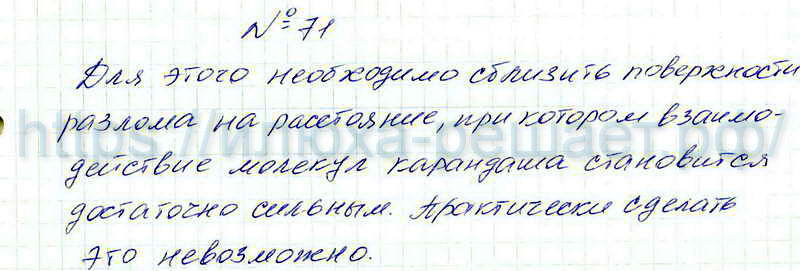 № 71
Для этого необходимо сблизить поверхности
разлома на расстояние, при котором взаимо-
https://илюха-решает.рф/
действие молекул карандаша становится
достаточно сильным. Практически сделать
это невозможно.